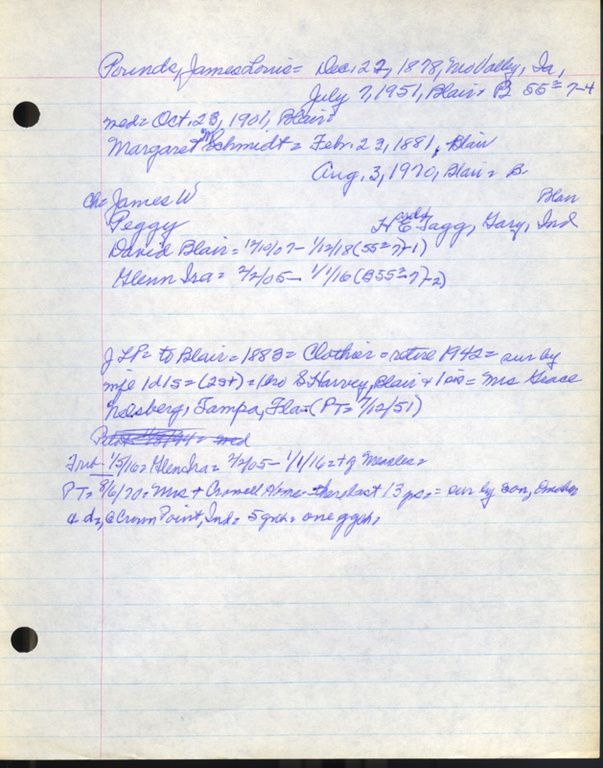 Pounds, James Louis = Dec. 27, 1878, Mo Valley, Ia,
July 7, 1951, Blair = B 55 = 7-4
med = Oct. 23, 1901, Blair
Margaret M Schmidt = Feb. 23, 1881, Blair
Aug. 3, 1970, Blair = B
Ch = James W Blair
Peggy H E Tagg, Gary, Ind
David Blair = 12/10/07 - 1/12/18 (55 = 7)-1)
Glenn Ira = 2/2/05 - 1/1/16 (B55 = 7)-2)
J L P = to Blair = 1883 = Clothier = retire 1942 = sur by
mje 1d 1s = (2st) = 1bro S Harvey, Blair + 1 sis = Mrs Grace
Tampa, Fla = (PT = 7/12/51)
Pilot med
Trib 1/5/16 = Glen Ira = 2/2/05 - 1/1/16 = Measles =
PT = 8/6/70 = Mrs + Crowell Home last 13 yrs. = sur by son, Omaha
& d, @ Crown Point, Ind = 5 gch = one ggch,